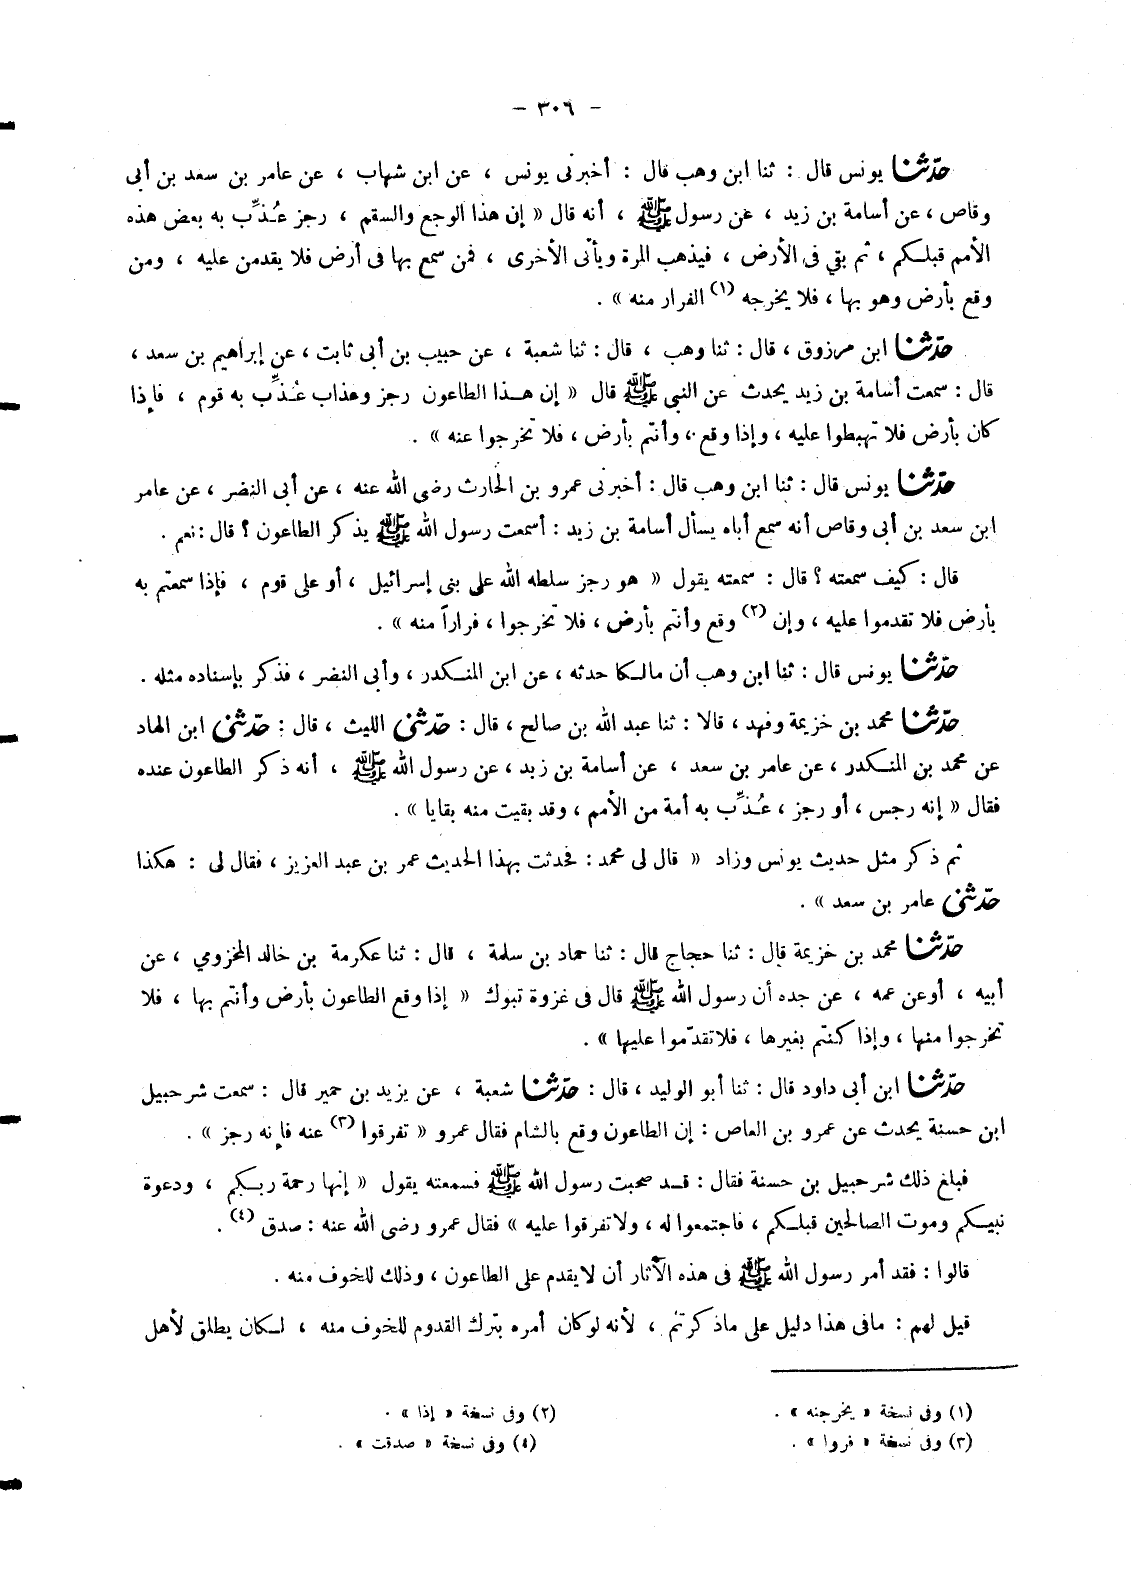 – ٣٠٦ –
حدّثنا يونس قال : ثنا ابن وهب قال : أخبرنى يونس ، عن ابن شهاب ، عن عامر بن سعد بن أبى
وقاص ، عن أسامة بن زيد ، عن رسول ﷺ ، أنه قال « إن هذا الوجع والسقم ، رجز عُذِّب به بعض هذه
الأمم قبلكم ، ثم بقي فى الأرض ، فيذهب المرة ويأتى الأخرى ، فمن سمع بها فى أرض فلا يقدمن عليه ، ومن
وقع بأرض وهو بها ، فلا يخرجه (١) الفرار منه » .
حدّثنا ابن مرزوق ، قال : ثنا وهب ، قال : ثنا شعبة ، عن حبيب بن أبى ثابت ، عن إبراهيم بن سعد ،
قال : سمعت أسامة بن زيد يحدث عن النبى ﷺ قال « إن هذا الطاعون رجز وعذاب عُذِّب به قوم ، فإذا
كان بأرض فلا تهبطوا عليه ، وإذا وقع ، وأنتم بأرض ، فلا تخرجوا عنه » .
حدّثنا يونس قال : ثنا ابن وهب قال : أخبرنى عمرو بن الحارث رضى الله عنه ، عن أبى النضر ، عن عامر
ابن سعد بن أبى وقاص أنه سمع أباه يسأل أسامة بن زيد : أسمعت رسول الله ﷺ يذكر الطاعون ؟ قال : نعم .
قال : كيف سمعته ؟ قال : سمعته يقول « هو رجز سلطه الله على بنى إسرائيل ، أو على قوم ، فإذا سمعتم به
بأرض فلا تقدموا عليه ، وإن (٢) وقع وأنتم بأرض ، فلا تخرجوا ، فراراً منه » .
حدّثنا يونس قال : ثنا ابن وهب أن مالكا حدثه ، عن ابن المنكدر ، وأبى النضر ، فذكر بإسناده مثله .
حدّثنا محمد بن خزيمة وفهد ، قالا : ثنا عبد الله بن صالح ، قال : حدّثنى الليث ، قال : حدّثنى ابن الهاد
عن محمد بن المنكدر ، عن عامر بن سعد ، عن أسامة بن زيد ، عن رسول الله ﷺ ، أنه ذكر الطاعون عنده
فقال « إنه رجس ، أو رجز ، عُذِّب به أمة من الأمم ، وقد بقيت منه بقايا » .
ثم ذكر مثل حديث يونس وزاد « قال لى محمد : فحدثت بهذا الحديث عمر بن عبد العزيز ، فقال لى : هكذا
حدّثنى عامر بن سعد » .
حدّثنا محمد بن خزيمة قال : ثنا حجاج قال : ثنا حماد بن سلمة ، قال : ثنا عكرمة بن خالد المخزومي ، عن
أبيه ، أوعن عمه ، عن جده أن رسول الله ﷺ قال فى غزوة تبوك « إذا وقع الطاعون بأرض وأنتم بها ، فلا
تخرجوا منها ، وإذا كنتم بغيرها ، فلاتقدّموا عليها » .
حدّثنا ابن أبى داود قال : ثنا أبو الوليد ، قال : حدّثنا شعبة ، عن يزيد بن حمير قال : سمعت شرحبيل
ابن حسنة يحدث عن عمرو بن العاص : إن الطاعون وقع بالشام فقال عمرو « تفرقوا (٣) عنه فإنه رجز » .
فبلغ ذلك شرحبيل بن حسنة فقال : قد صحبت رسول الله ﷺ فسمعته يقول « إنها رحمة ربكم ، ودعوة
نبيكم وموت الصالحين قبلكم ، فاجتمعوا له ، ولاتفرقوا عليه » فقال عمرو رضى الله عنه : صدق (٤) .
قالوا : فقد أمر رسول الله ﷺ فى هذه الآثار أن لايقدم على الطاعون ، وذلك للخوف منه .
قيل لهم : مافى هذا دليل على ماذكرتم ، لأنه لوكان أمره بترك القدوم للخوف منه ، لكان يطلق لأهل
(١) وفى نسخة « يخرجنه » . (٢) وفى نسخة « إذا » .
(٣) وفى نسخة « فروا » . (٤) وفى نسخة « صدقت » .